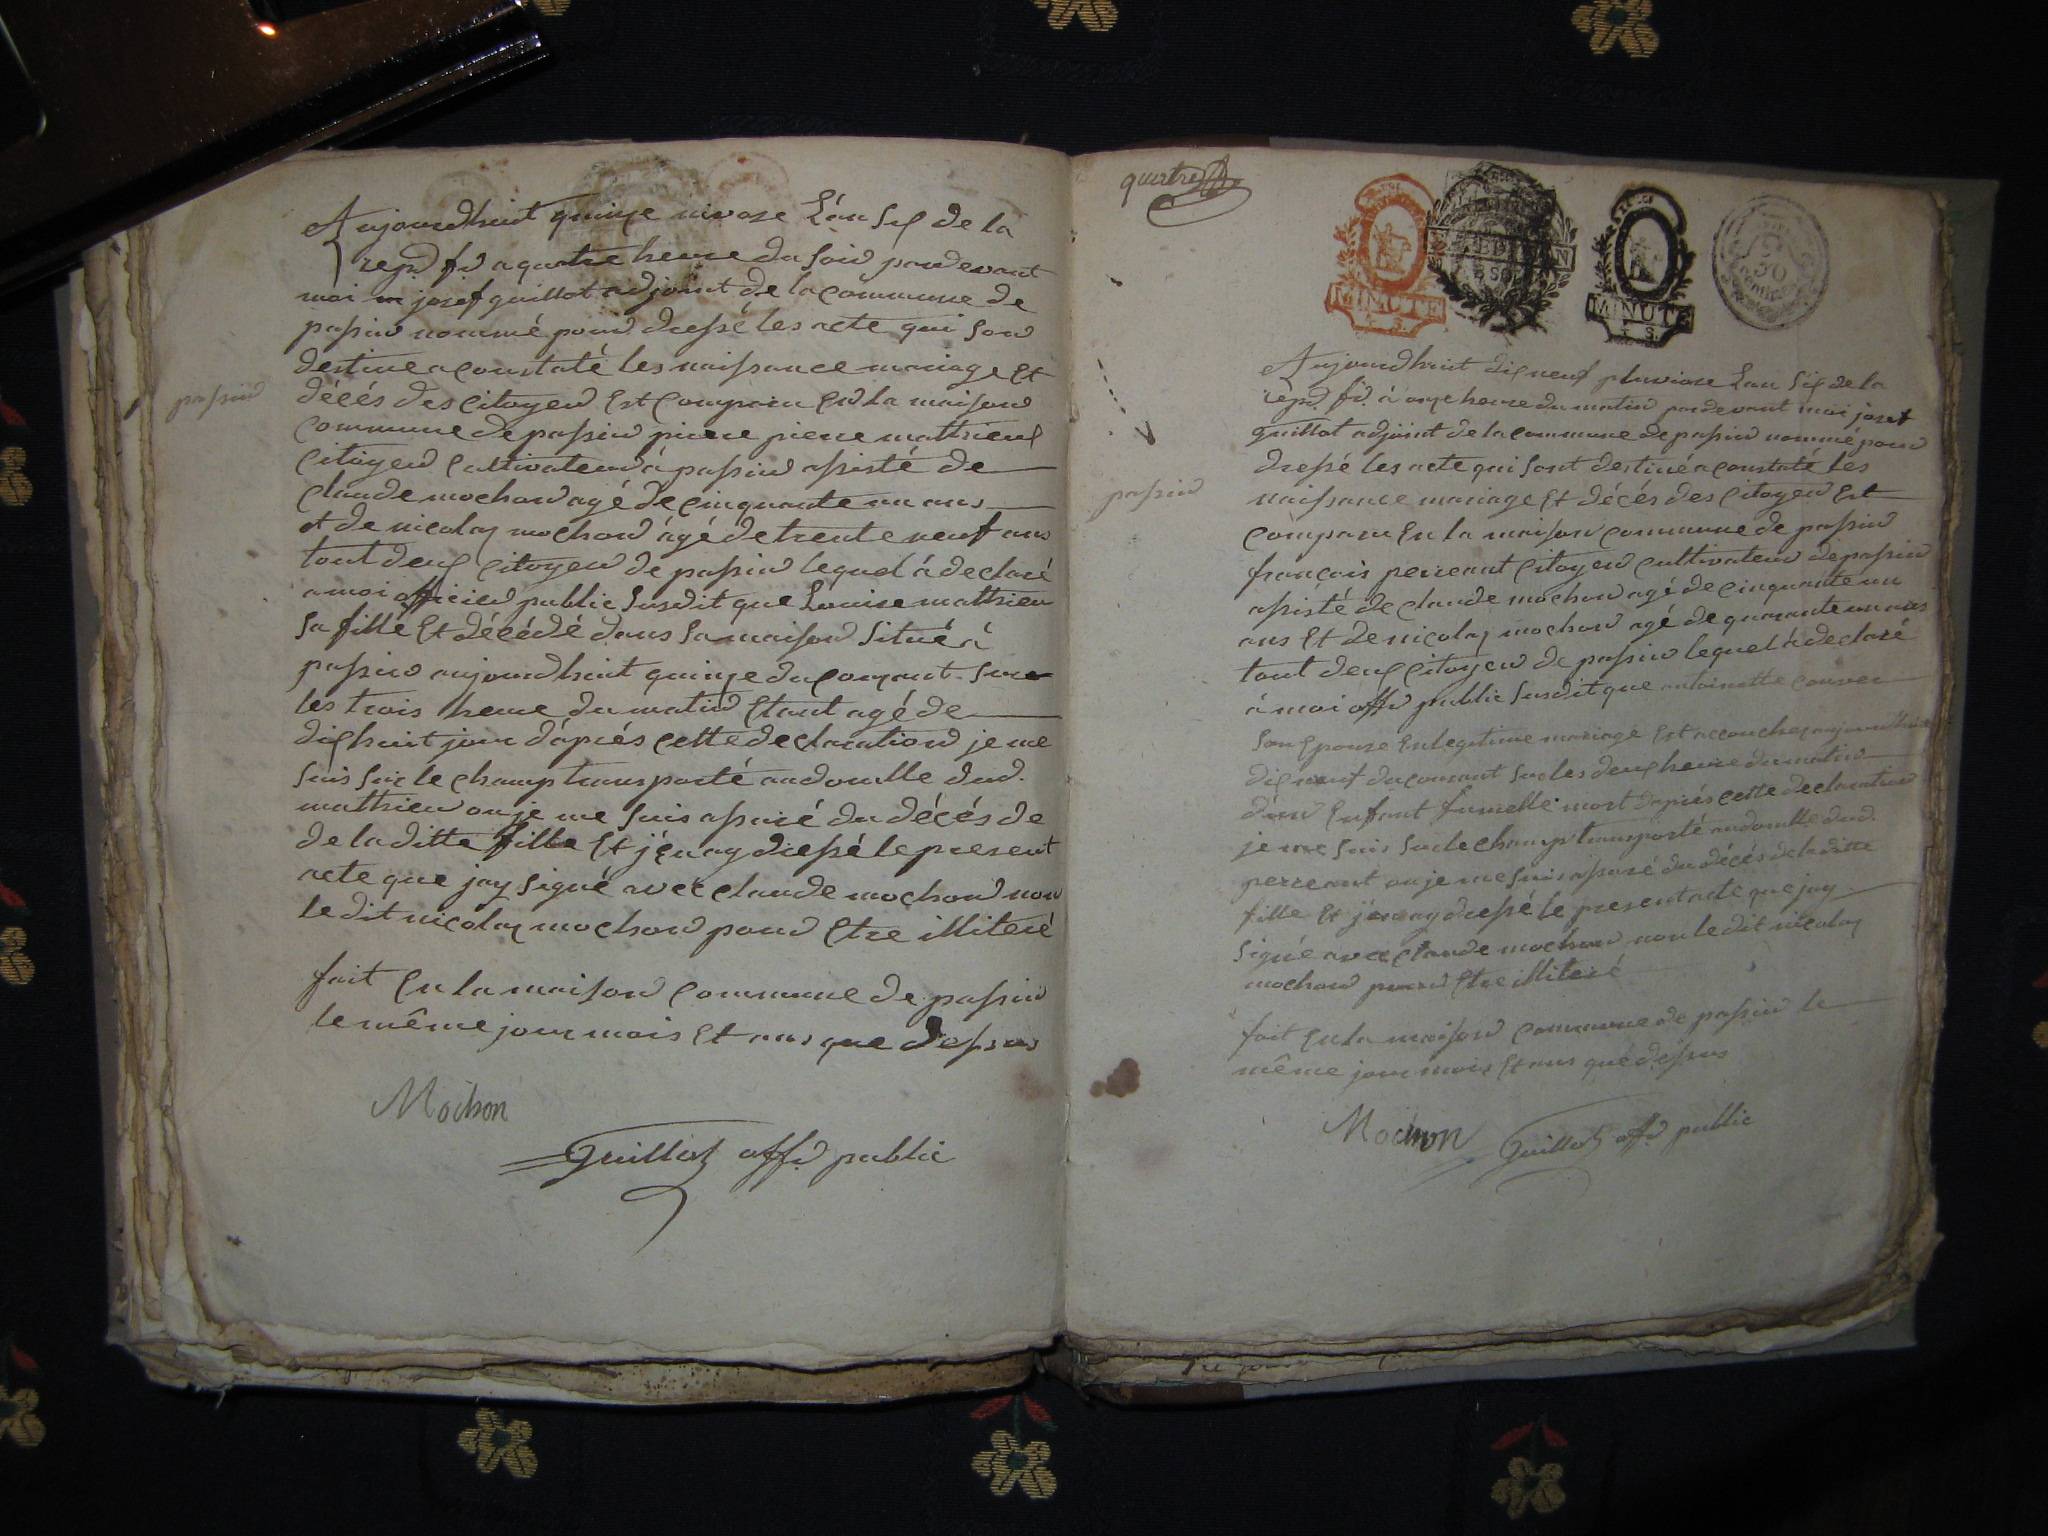 passin
Aujourdhuit quinze nivose L'an six de la
repd. fs. a quatre heure du soir pardevant
moi josef guillot adjoint de la commune de
passin nommé pour dressé les acte qui son
destine a constaté les naissance mariage Et
décés des Citoyen Est Comparu En la maison
commune de passin pierre pierre mathieux
Citoyen Cultivateur à passin assisté de
claude mochon agé de cinquante un ans
et de nicolas mochon âgé de trente neuf ans
tout deux Citoyen de passin lequel à declaré
a moi officier public susdit que Louise mathieu
sa fille Et décédé dans sa maison situé à
passin aujourdhuit quinze du courant sur
les trois heure du matin Etant agé de
dixhuit jour d'aprés cette declaration je me
suis sur le champ transporté au domille dud.
mathieu ou je me suis assuré du décés de
de la ditte fille Et j'en ay dressé le present
acte que jay signé avec claude mochon non
le dit nicolas mochon pour Etre illiteré
fait En la maison Commune de passin
le même jour mois Et ans que dessus
Mochon
Guillot offr public
quatre
MINUTE
MINUTE
50
centimes
passin
Aujourdhuit dix neuf pluviose L'an six de la
repd. fs. à onze heure du matin pardevant moi josef
guillot adjoint de la commune de passin nommé pour
dressé les acte qui sont destiné a constaté les
naissance mariage Et décés des Citoyen Est
Comparu En la maison commune de passin
françois perreant Citoyen Cultivateur de passin
assisté de claude mochon agé de cinquante un
ans Et de nicolas mochon agé de quarante un ans
tout deux Citoyen de passin lequel à declaré
à moi offr public susdit que antoinette
son Epouse En legitime mariage Est accouchez aujourdhuit
dix neuf du courant sur les deux heure du matin
d'un Enfant fumelle mort d'aprés cette declaration
je me suis sur le champ transporté au domille dud.
perreant ou je me suis assuré du décés de la ditte
fille Et j'en ay dressé le present acte que jay
signé avec claude mochon non le dit nicolas
mochon pour Etre illiteré
fait En la maison commune de passin le
même jour mois Et ans que dessus
Mochon
Guillot offr public